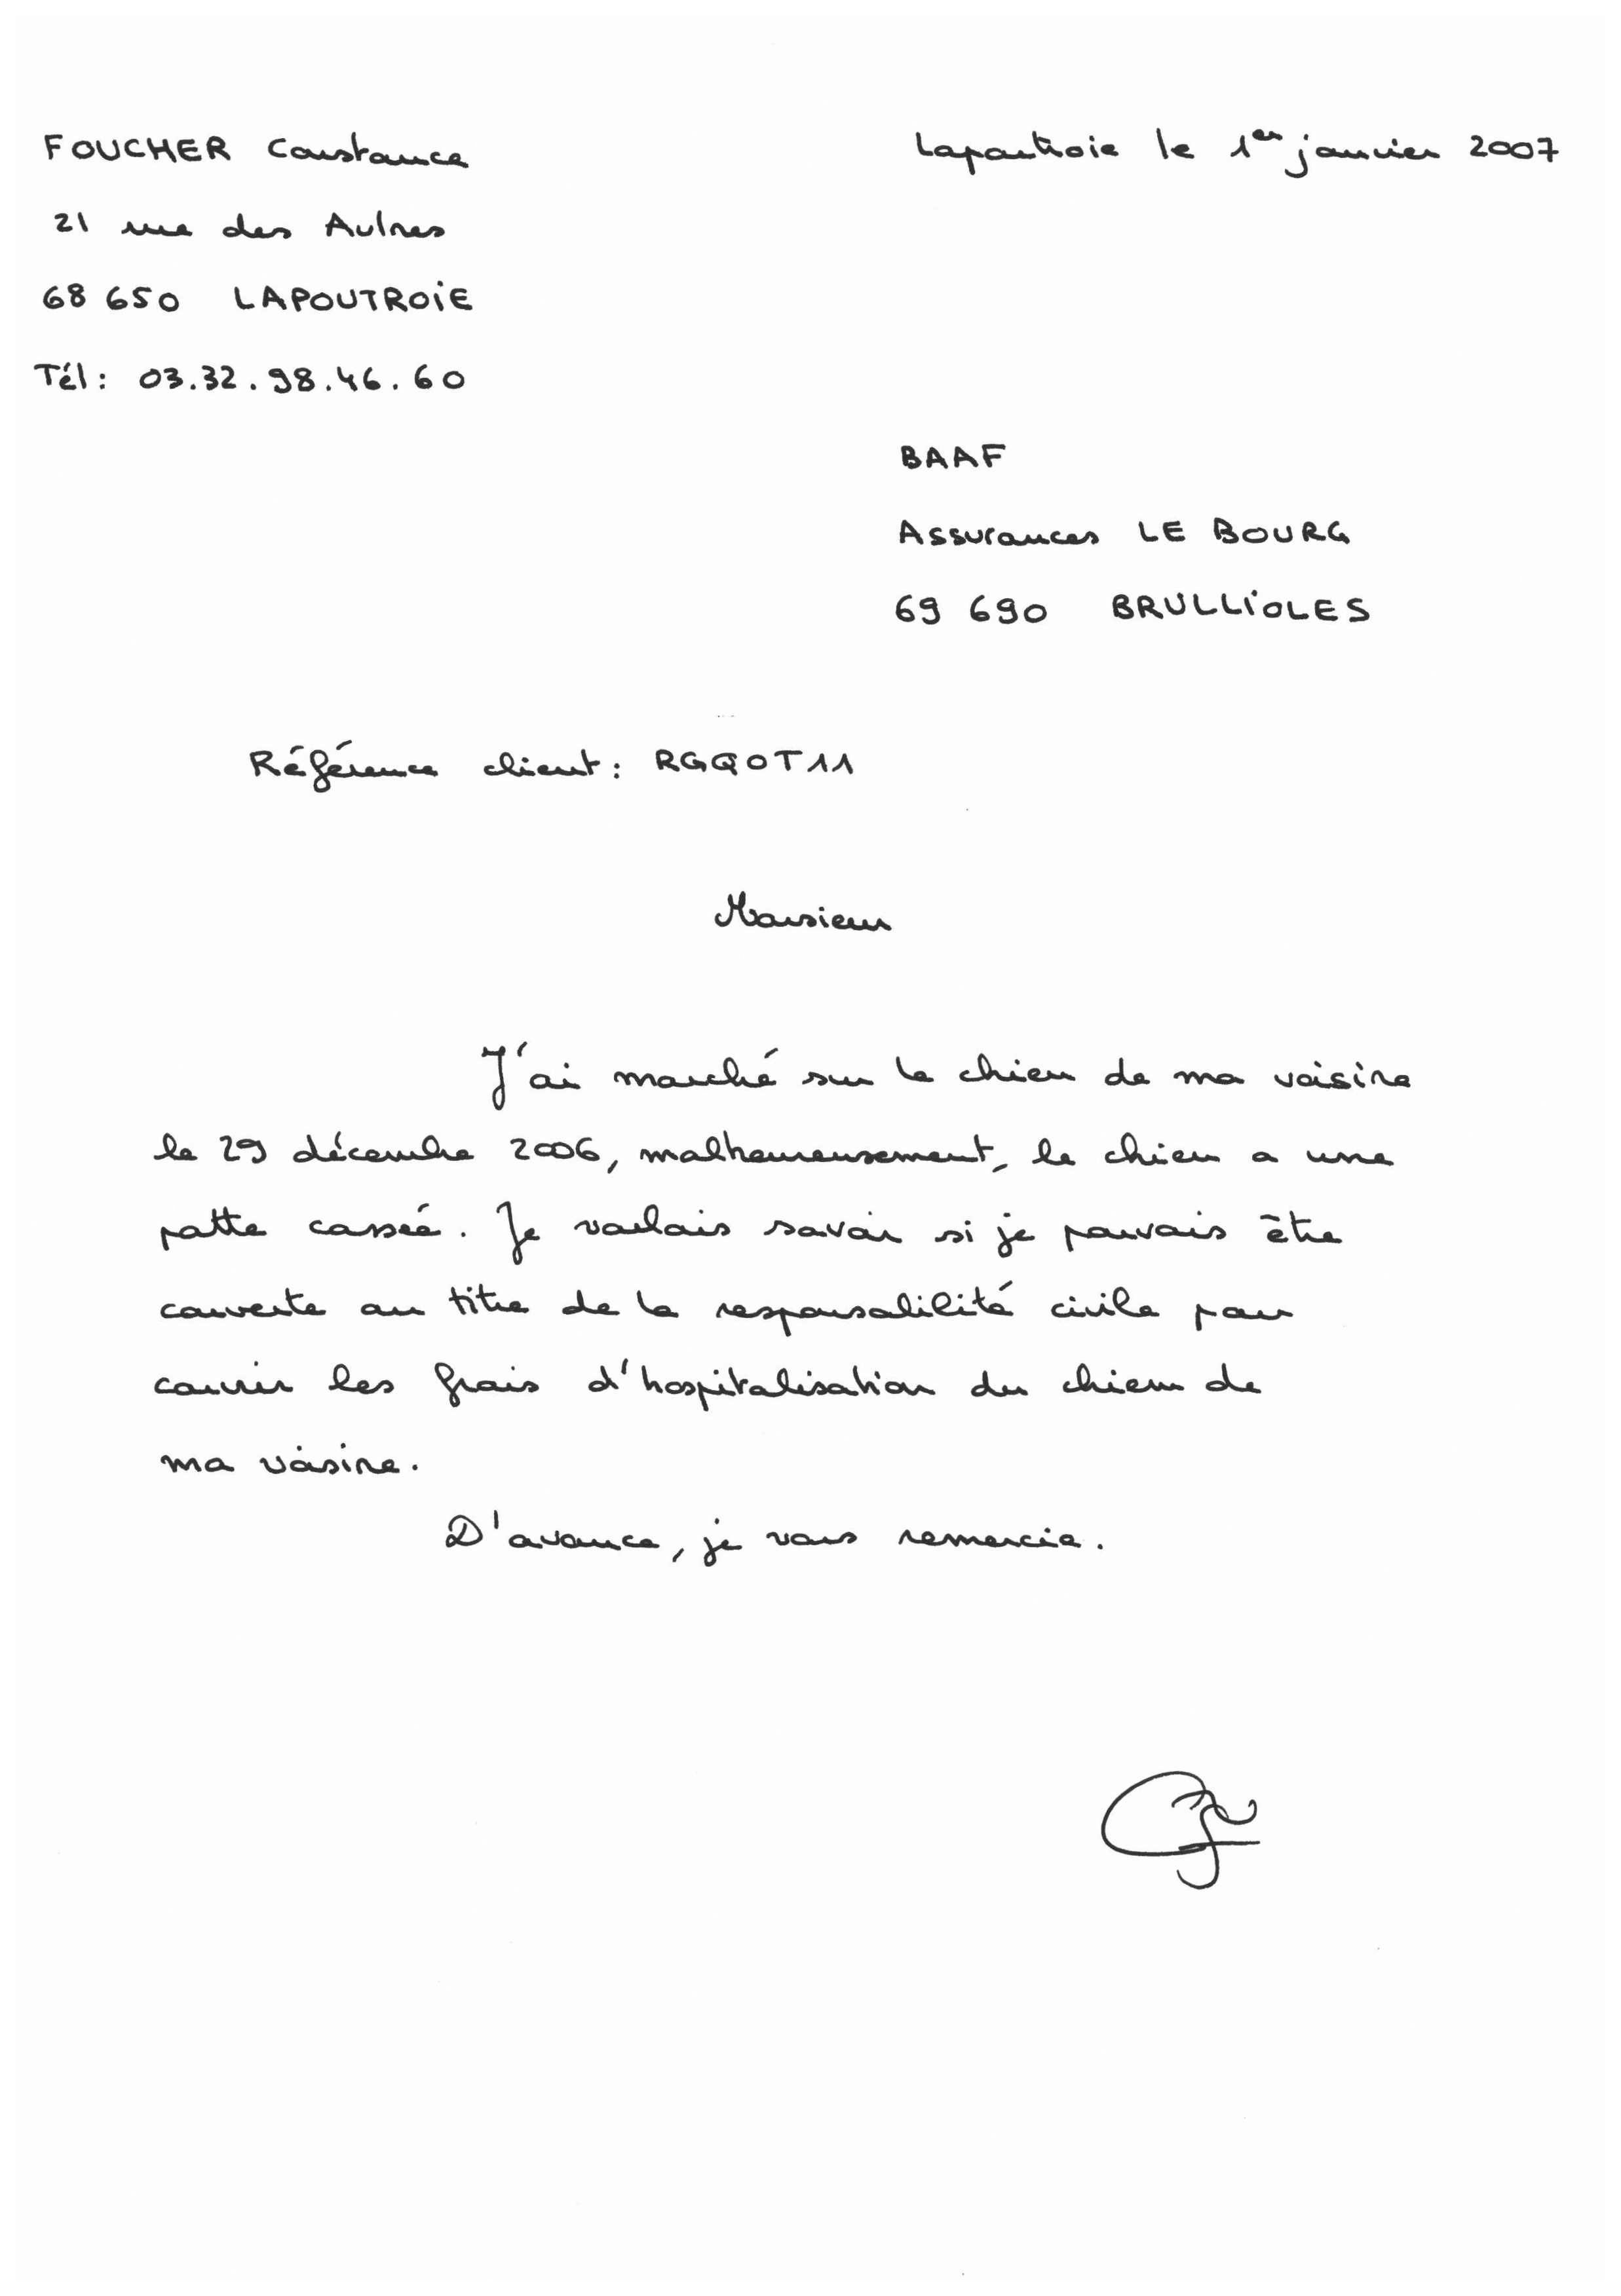 FOUCHER Constance
Lapoutroie le 1er janvier 2007
21 rue des Aulnes
68 650 LAPOUTROIE
Tél : 03.32.98.46.60
BAAF
Assurances LE BOURG
69 690 BRULLIOLES
Référence client : RGQOT11
Monsieur
J'ai marché sur le chien de ma voisine
le 29 décembre 2006, malheureusement, le chien a une
patte cassée. Je voulais savoir si je pouvais être
couverte au titre de la responsabilité civile pour
couvrir les frais d'hospitalisation du chien de
ma voisine.
D'avance, je vous remercie.